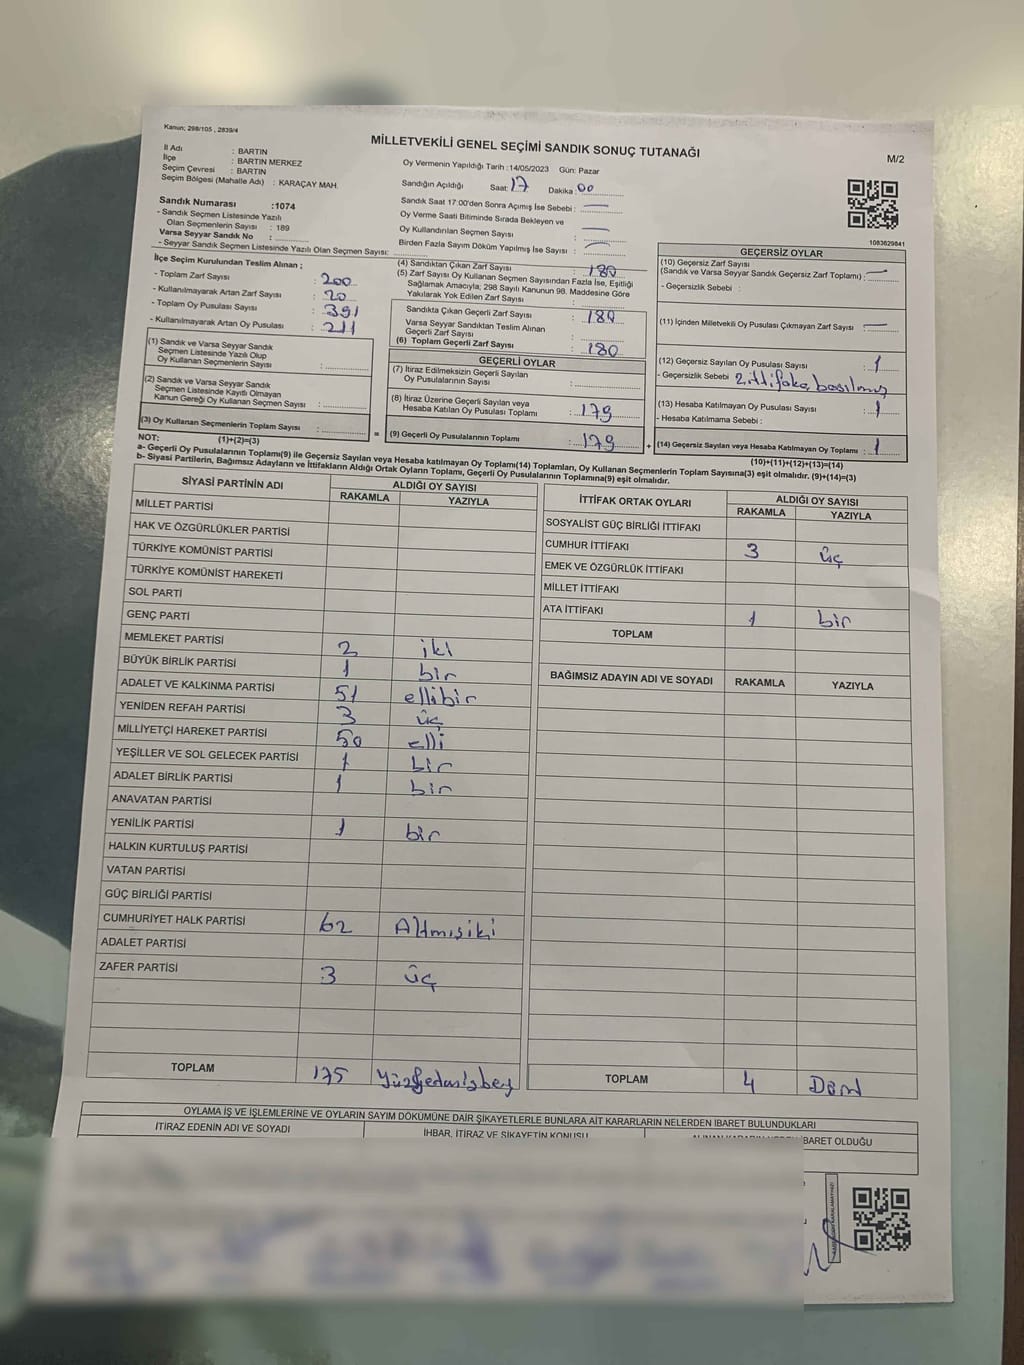 Kanun; 298/105 , 2839/4
MİLLETVEKİLİ GENEL SEÇİMİ SANDIK SONUÇ TUTANAĞI
M/2
İl Adı : BARTIN
İlçe : BARTIN MERKEZ
Seçim Çevresi : BARTIN
Seçim Bölgesi (Mahalle Adı) : KARAÇAY MAH.
Sandık Numarası :1074
- Sandık Seçmen Listesinde Yazılı
Olan Seçmenlerin Sayısı : 189
Varsa Seyyar Sandık No :
- Seyyar Sandık Seçmen Listesinde Yazılı Olan Seçmen Sayısı:
Oy Vermenin Yapıldığı Tarih :14/05/2023 Gün: Pazar
Sandığın Açıldığı Saat: 17 Dakika: 00
Sandık Saat 17:00'den Sonra Açımış İse Sebebi : —
Oy Verme Saati Bitiminde Sırada Bekleyen ve
Oy Kullandırılan Seçmen Sayısı : —
Birden Fazla Sayım Döküm Yapılmış İse Sayısı : —
1083629841
İlçe Seçim Kurulundan Teslim Alınan ;
- Toplam Zarf Sayısı : 200
- Kullanılmayarak Artan Zarf Sayısı : 20
- Toplam Oy Pusulası Sayısı : 391
- Kullanılmayarak Artan Oy Pusulası : 211
(1) Sandık ve Varsa Seyyar Sandık
Seçmen Listesinde Yazılı Olup
Oy Kullanan Seçmenlerin Sayısı :
(2) Sandık ve Varsa Seyyar Sandık
Seçmen Listesinde Kayıtlı Olmayan
Kanun Gereği Oy Kullanan Seçmen Sayısı :
(3) Oy Kullanan Seçmenlerin Toplam Sayısı :
(1)+(2)=(3)
(4) Sandıktan Çıkan Zarf Sayısı : 180
(5) Zarf Sayısı Oy Kullanan Seçmen Sayısından Fazla İse, Eşitliği
Sağlamak Amacıyla; 298 Sayılı Kanunun 98. Maddesine Göre
Yakılarak Yok Edilen Zarf Sayısı :
Sandıkta Çıkan Geçerli Zarf Sayısı : 180
Varsa Seyyar Sandıktan Teslim Alınan
Geçerli Zarf Sayısı :
(6) Toplam Geçerli Zarf Sayısı : 180
GEÇERLİ OYLAR
(7) İtiraz Edilmeksizin Geçerli Sayılan
Oy Pusulalarının Sayısı :
(8) İtiraz Üzerine Geçerli Sayılan veya
Hesaba Katılan Oy Pusulası Toplamı : 179
= (9) Geçerli Oy Pusulalarının Toplamı : 179
GEÇERSİZ OYLAR
(10) Geçersiz Zarf Sayısı
(Sandık ve Varsa Seyyar Sandık Geçersiz Zarf Toplamı) : —
- Geçersizlik Sebebi :
(11) İçinden Milletvekili Oy Pusulası Çıkmayan Zarf Sayısı : —
(12) Geçersiz Sayılan Oy Pusulası Sayısı : 1
- Geçersizlik Sebebi : 2 ittifaka basılmış
(13) Hesaba Katılmayan Oy Pusulası Sayısı : 1
- Hesaba Katılmama Sebebi :
+ (14) Geçersiz Sayılan veya Hesaba Katılmayan Oy Toplamı : 1
(10)+(11)+(12)+(13)=(14)
NOT:
a- Geçerli Oy Pusulaları Toplamı(9) ile Geçersiz Sayılan veya Hesaba katılmayan Oy Toplamı(14) Toplamları, Oy Kullanan Seçmenlerin Toplam Sayısına(3) eşit olmalıdır. (9)+(14)=(3)
b- Siyasi Partilerin, Bağımsız Adayların ve İttifakların Aldığı Ortak Oyların Toplamı, Geçerli Oy Pusulalarının Toplamına(9) eşit olmalıdır.
SİYASİ PARTİNİN ADI ALDIĞI OY SAYISI
RAKAMLA YAZIYLA
MİLLET PARTİSİ
HAK VE ÖZGÜRLÜKLER PARTİSİ
TÜRKİYE KOMÜNİST PARTİSİ
TÜRKİYE KOMÜNİST HAREKETİ
SOL PARTİ
GENÇ PARTİ
MEMLEKET PARTİSİ 2 iki
BÜYÜK BİRLİK PARTİSİ 1 bir
ADALET VE KALKINMA PARTİSİ 51 ellibir
YENİDEN REFAH PARTİSİ 3 üç
MİLLİYETÇİ HAREKET PARTİSİ 50 elli
YEŞİLLER VE SOL GELECEK PARTİSİ 1 bir
ADALET BİRLİK PARTİSİ 1 bir
ANAVATAN PARTİSİ
YENİLİK PARTİSİ 1 bir
HALKIN KURTULUŞ PARTİSİ
VATAN PARTİSİ
GÜÇ BİRLİĞİ PARTİSİ
CUMHURİYET HALK PARTİSİ 62 Altmışiki
ADALET PARTİSİ
ZAFER PARTİSİ 3 üç
TOPLAM 175
İTTİFAK ORTAK OYLARI ALDIĞI OY SAYISI
RAKAMLA YAZIYLA
SOSYALİST GÜÇ BİRLİĞİ İTTİFAKI
CUMHUR İTTİFAKI 3 üç
EMEK VE ÖZGÜRLÜK İTTİFAKI
MİLLET İTTİFAKI
ATA İTTİFAKI 1 bir
TOPLAM
BAĞIMSIZ ADAYIN ADI VE SOYADI RAKAMLA YAZIYLA
TOPLAM 4
OYLAMA İŞ VE İŞLEMLERİNE VE OYLARIN SAYIM DÖKÜMÜNE DAİR ŞİKAYETLERLE BUNLARA AİT KARARLARIN NELERDEN İBARET BULUNDUKLARI
İTİRAZ EDENİN ADI VE SOYADI
İHBAR, İTİRAZ VE ŞİKAYETİN KONUSU
İBARET OLDUĞU